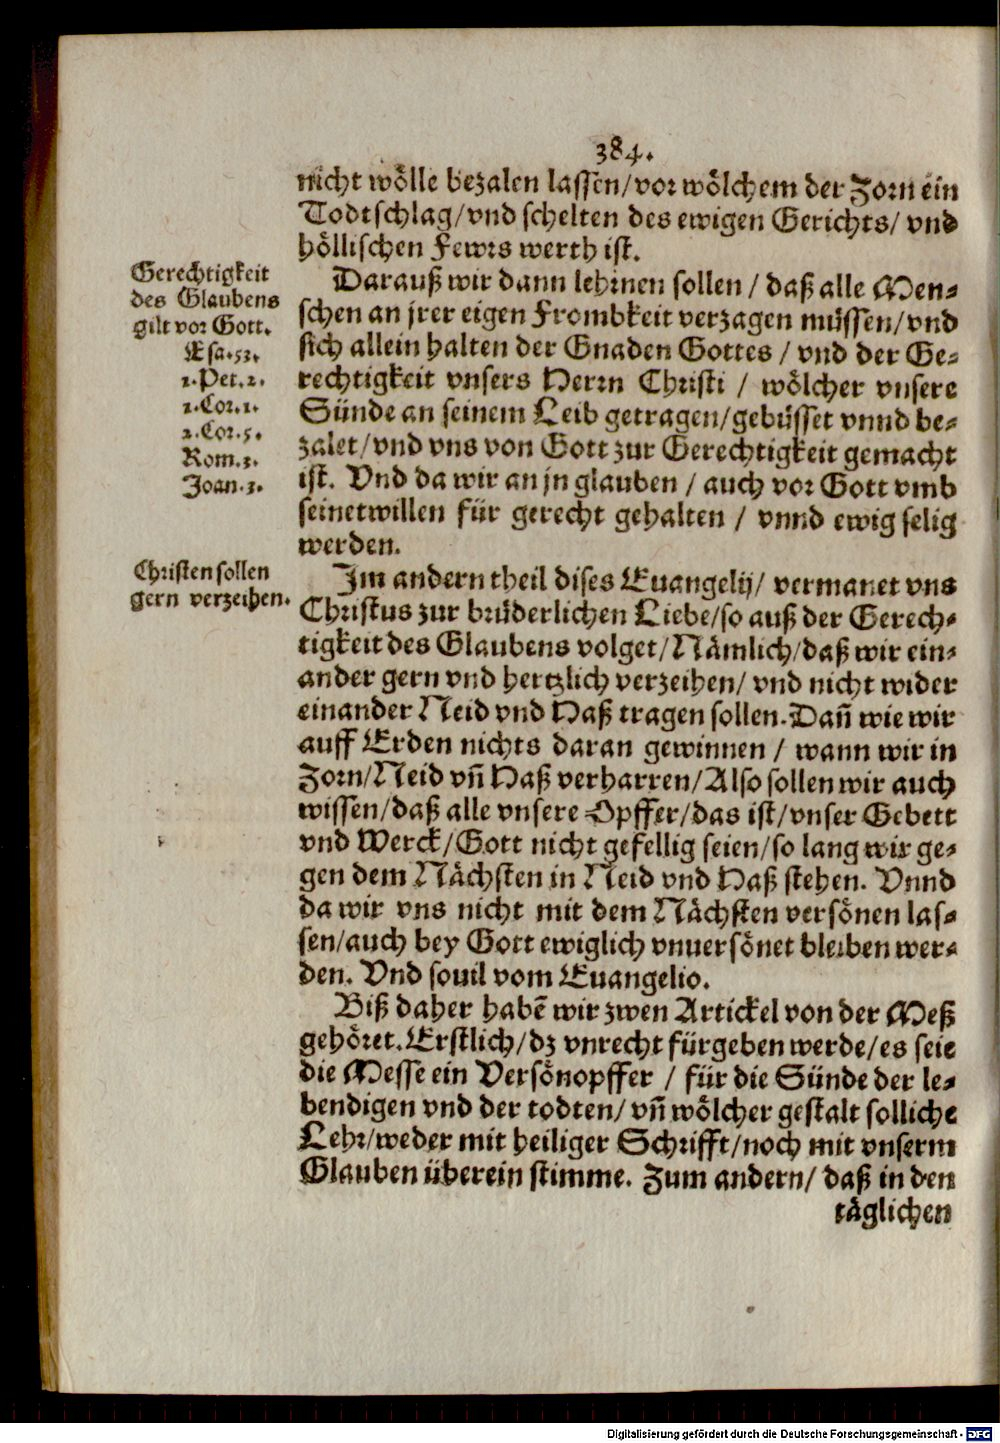 384.
nicht wölle bezalen lassen/vor wölchem der Zorn ein
Todtschlag/vnd schelten des ewigen Gerichts/ vnd
höllischen Fewrs werth ist.
Gerechtigkeit
des Glaubens
gilt vor Gott.
Esa.53.
1.Pet.2.
1.Cor.1.
2.Cor.5.
Rom.3.
Joan.3.
Darauß wir dann lehrnen sollen / daß alle Men-
schen an jrer eigen Frombkeit verzagen müssen/vnd
sich allein halten der Gnaden Gottes / vnd der Ge-
rechtigkeit vnsers Herrn Christi / wölcher vnsere
Sünde an seinem Leib getragen/gebüsset vnnd be-
zalet/vnd vns von Gott zur Gerechtigkeit gemacht
ist. Vnd da wir an jn glauben / auch vor Gott vmb
seinetwillen für gerecht gehalten / vnnd ewig selig
werden.
Christen sollen
gern verzeihen.
Im andern theil dises Euangelij/ vermanet vns
Christus zur brüderlichen Liebe/so auß der Gerech-
tigkeit des Glaubens volget/Nämlich/daß wir ein-
ander gern vnd hertzlich verzeihen/ vnd nicht wider
einander Neid vnd Haß tragen sollen.Dañ wie wir
auff Erden nichts daran gewinnen / wann wir in
Zorn/Neid vñ Haß verharren/Also sollen wir auch
wissen/daß alle vnsere Opffer/das ist/vnser Gebett
vnd Werck/Gott nicht gefellig seien/so lang wir ge-
gen dem Nächsten in Neid vnd Haß stehen. Vnnd
da wir vns nicht mit dem Nächsten versönen las-
sen/auch bey Gott ewiglich vnuersönet bleiben wer-
den. Vnd souil vom Euangelio.
Biß daher habē wir zwen Artickel von der Meß
gehöret.Erstlich/dz vnrecht fürgeben werde/es seie
die Messe ein Versönopffer / für die Sünde der le-
bendigen vnd der todten/ vñ wölcher gestalt solliche
Lehr/weder mit heiliger Schrifft/noch mit vnserm
Glauben überein stimme. Zum andern/ daß in den
täglichen
Digitalisierung gefördert durch die Deutsche Forschungsgemeinschaft - DFG